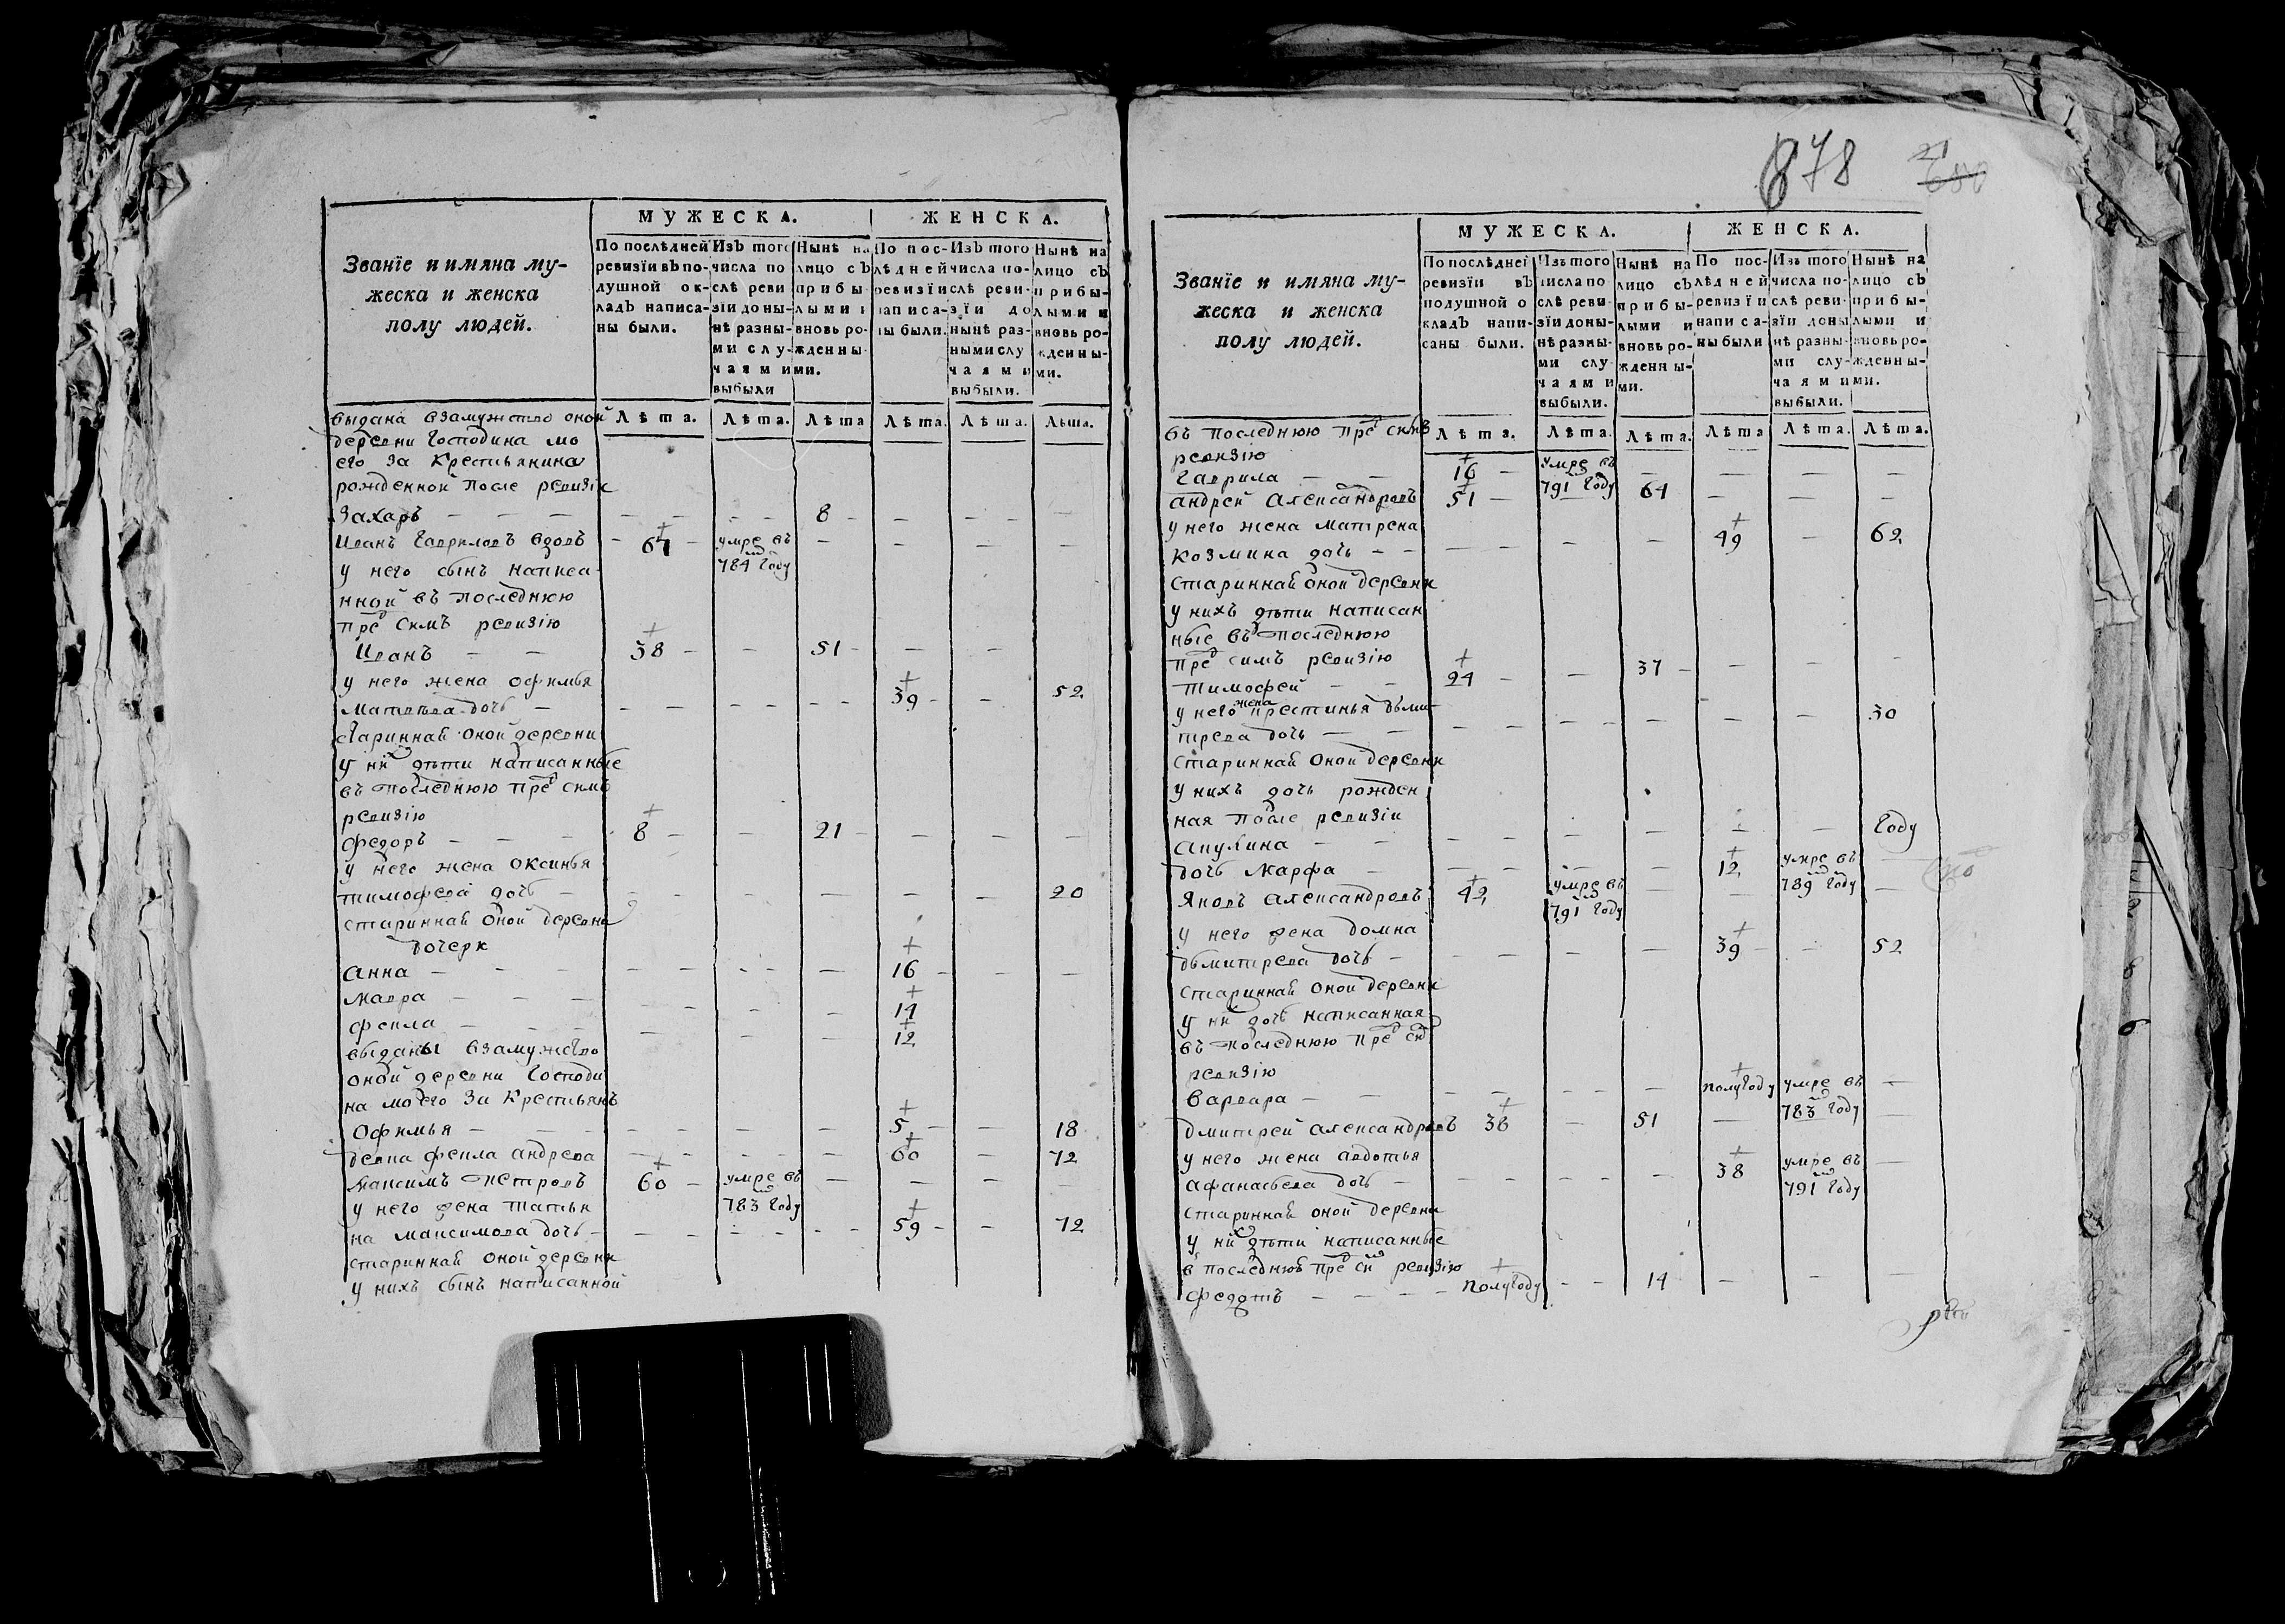 МУЖЕСКА. ЖЕНСКА.
Званїе и имяна му-
жеска и женска
полу людей.
По послѣдней ревизїи въ по-душной ок-ладъ написа-ны были.
Изъ того числа по слѣ реви зїи до ны-нѣ разны-ми слу-чаями выбыли
Нынѣ на лицо съ прибы лыми и вновь ро-жденны-ми.
По пос-лѣдней ревизїи написа-ны были.
Изъ того числа по-слѣ реви-зїи до нынѣ раз-ными слу чаями выбыли.
Нынѣ на лицо съ прибы-лыми и вновь ро-жденны-ми.
Лѣта. Лѣта. Лѣта Лѣта. Лѣта. Лѣта.
выдана взамужство оной
деревни Господина мо
его за Крестьянина
рожденной после ревизiи
Захаръ — — — 8
Иванъ Гавриловъ вдовъ 67 умре въ
784мъ году
у него сынъ написа
нной въ последнюю
пред симъ ревизiю
Иванъ — — 38 — — 51 — — —
у него жена Офимья
Матвѣева дочь — 39 — — 52
стариннай оной деревни
у них дѣти написанные
въ последнюю пред симъ
ревизiю
Федоръ — — — 8 — — 21 — — — —
у него жена Оксинья
тимофева дочь — 20
стариннай оной деревни
дочери
Анна — — — 16
Мавра — — — 14
Фекла — — — 12
выданы взамужство
оной деревни Господи
на моего за Крестьянъ
Офимья — — — 5 — — 18
девка Фекла андрева 60 — 72
Максимъ Петровъ 60 — умре въ
783мъ году
у него жена Татья
на Максимова дочь — 59 — — 72
стариннай оной деревни
у нихъ сынъ написанной
878
21
680
МУЖЕСКА. ЖЕНСКА.
Званїе и имяна му-
жеска и женска
полу людей.
По послѣдней ревизїи въ подушной о кладъ напи-саны были.
Изъ того числа по слѣ реви-зїи до ны-нѣ разны-ми слу чаями выбыли.
Нынѣ на лицо съ прибы-лыми и вновь ро-жденны-ми.
По пос-лѣдней ревизїи написа-ны были
Изъ того числа по-слѣ реви-зїи до ны нѣ разны-ми слу-чаями выбыли.
Нынѣ на лицо съ прибы-лыми и вновь ро-жденны-ми.
Лѣта. Лѣта. Лѣта. Лѣта Лѣта. Лѣта.
въ последнюю пред симъ
ревизiю
Гаврила — — 16 — умре въ
791 году
андрей Александровъ 51 — 64
у него жена Матрена
Козмина дочь — — 49 — 62
стариннай оной деревни
у нихъ дѣти написан
ные въ последнюю
пред симъ ревизiю
Тимофей — — 24 — — 37 — — — —
у него жена Крестинья дьми
трева дочь — — 30
стариннай оной деревни
у нихъ дочь рожден
ная после ревизiи
Акулина — — году
дочь Марфа — 12 умре въ
789мъ году
Яковъ Александровъ 42 умре въ
791мъ году
у него жена Домна
дьмитрева дочь — 39 — — 52
стариннай оной деревни
у них дочь написанная
въ последнюю пред сим
ревизiю
Варвара — — полугоду умре въ
783мъ году
Дмитрей Александровъ 36 — 51
у него жена авдотья
афанасьева дочь — 38 умре въ
791мъ году
стариннай оной деревни
у них дѣти написанные
в последнюю пред сим ревизiю
Федотъ — — — — полугоду — — 14 — — —